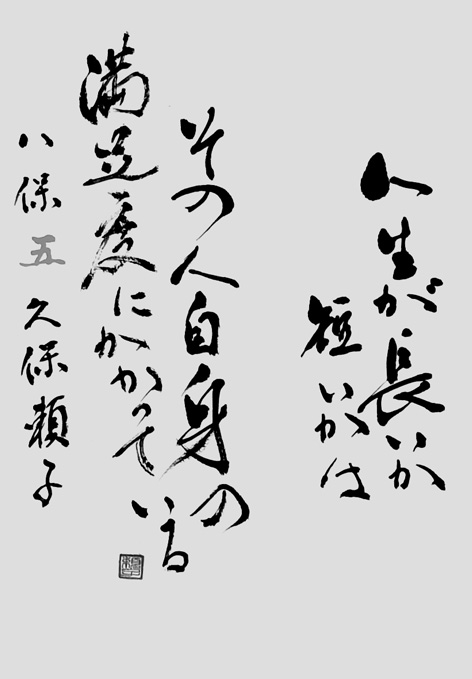 人生が長いか
短いかは
その人自身の
満足度にかかって
いる
八保 五 久保頼子